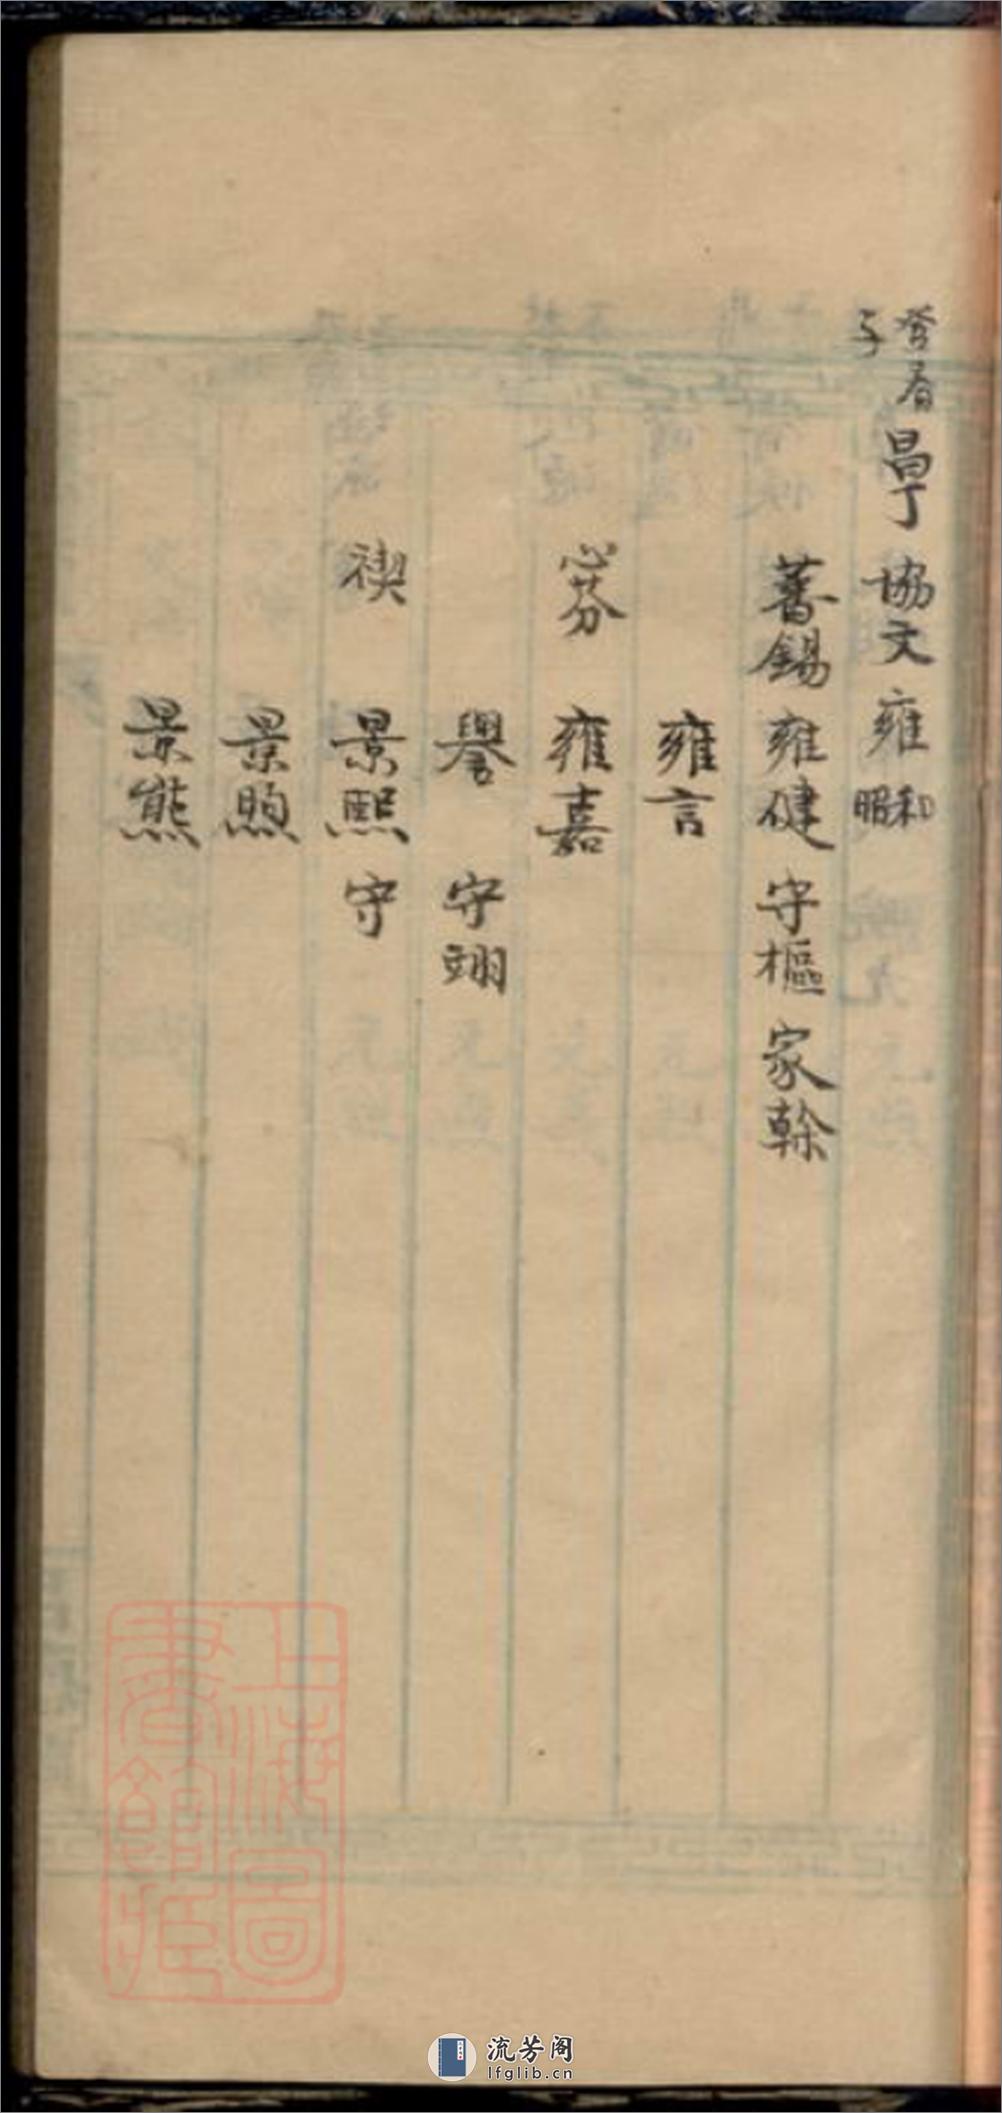 登眉子
昌丁 協文 雍和昭
蕃錫 雍健 守樞 家榦
雍言
雍嘉
譽 守翊
禊 景熙 守
景煦
景熊
上海圖書館藏
流芳阁
lfglib.cn